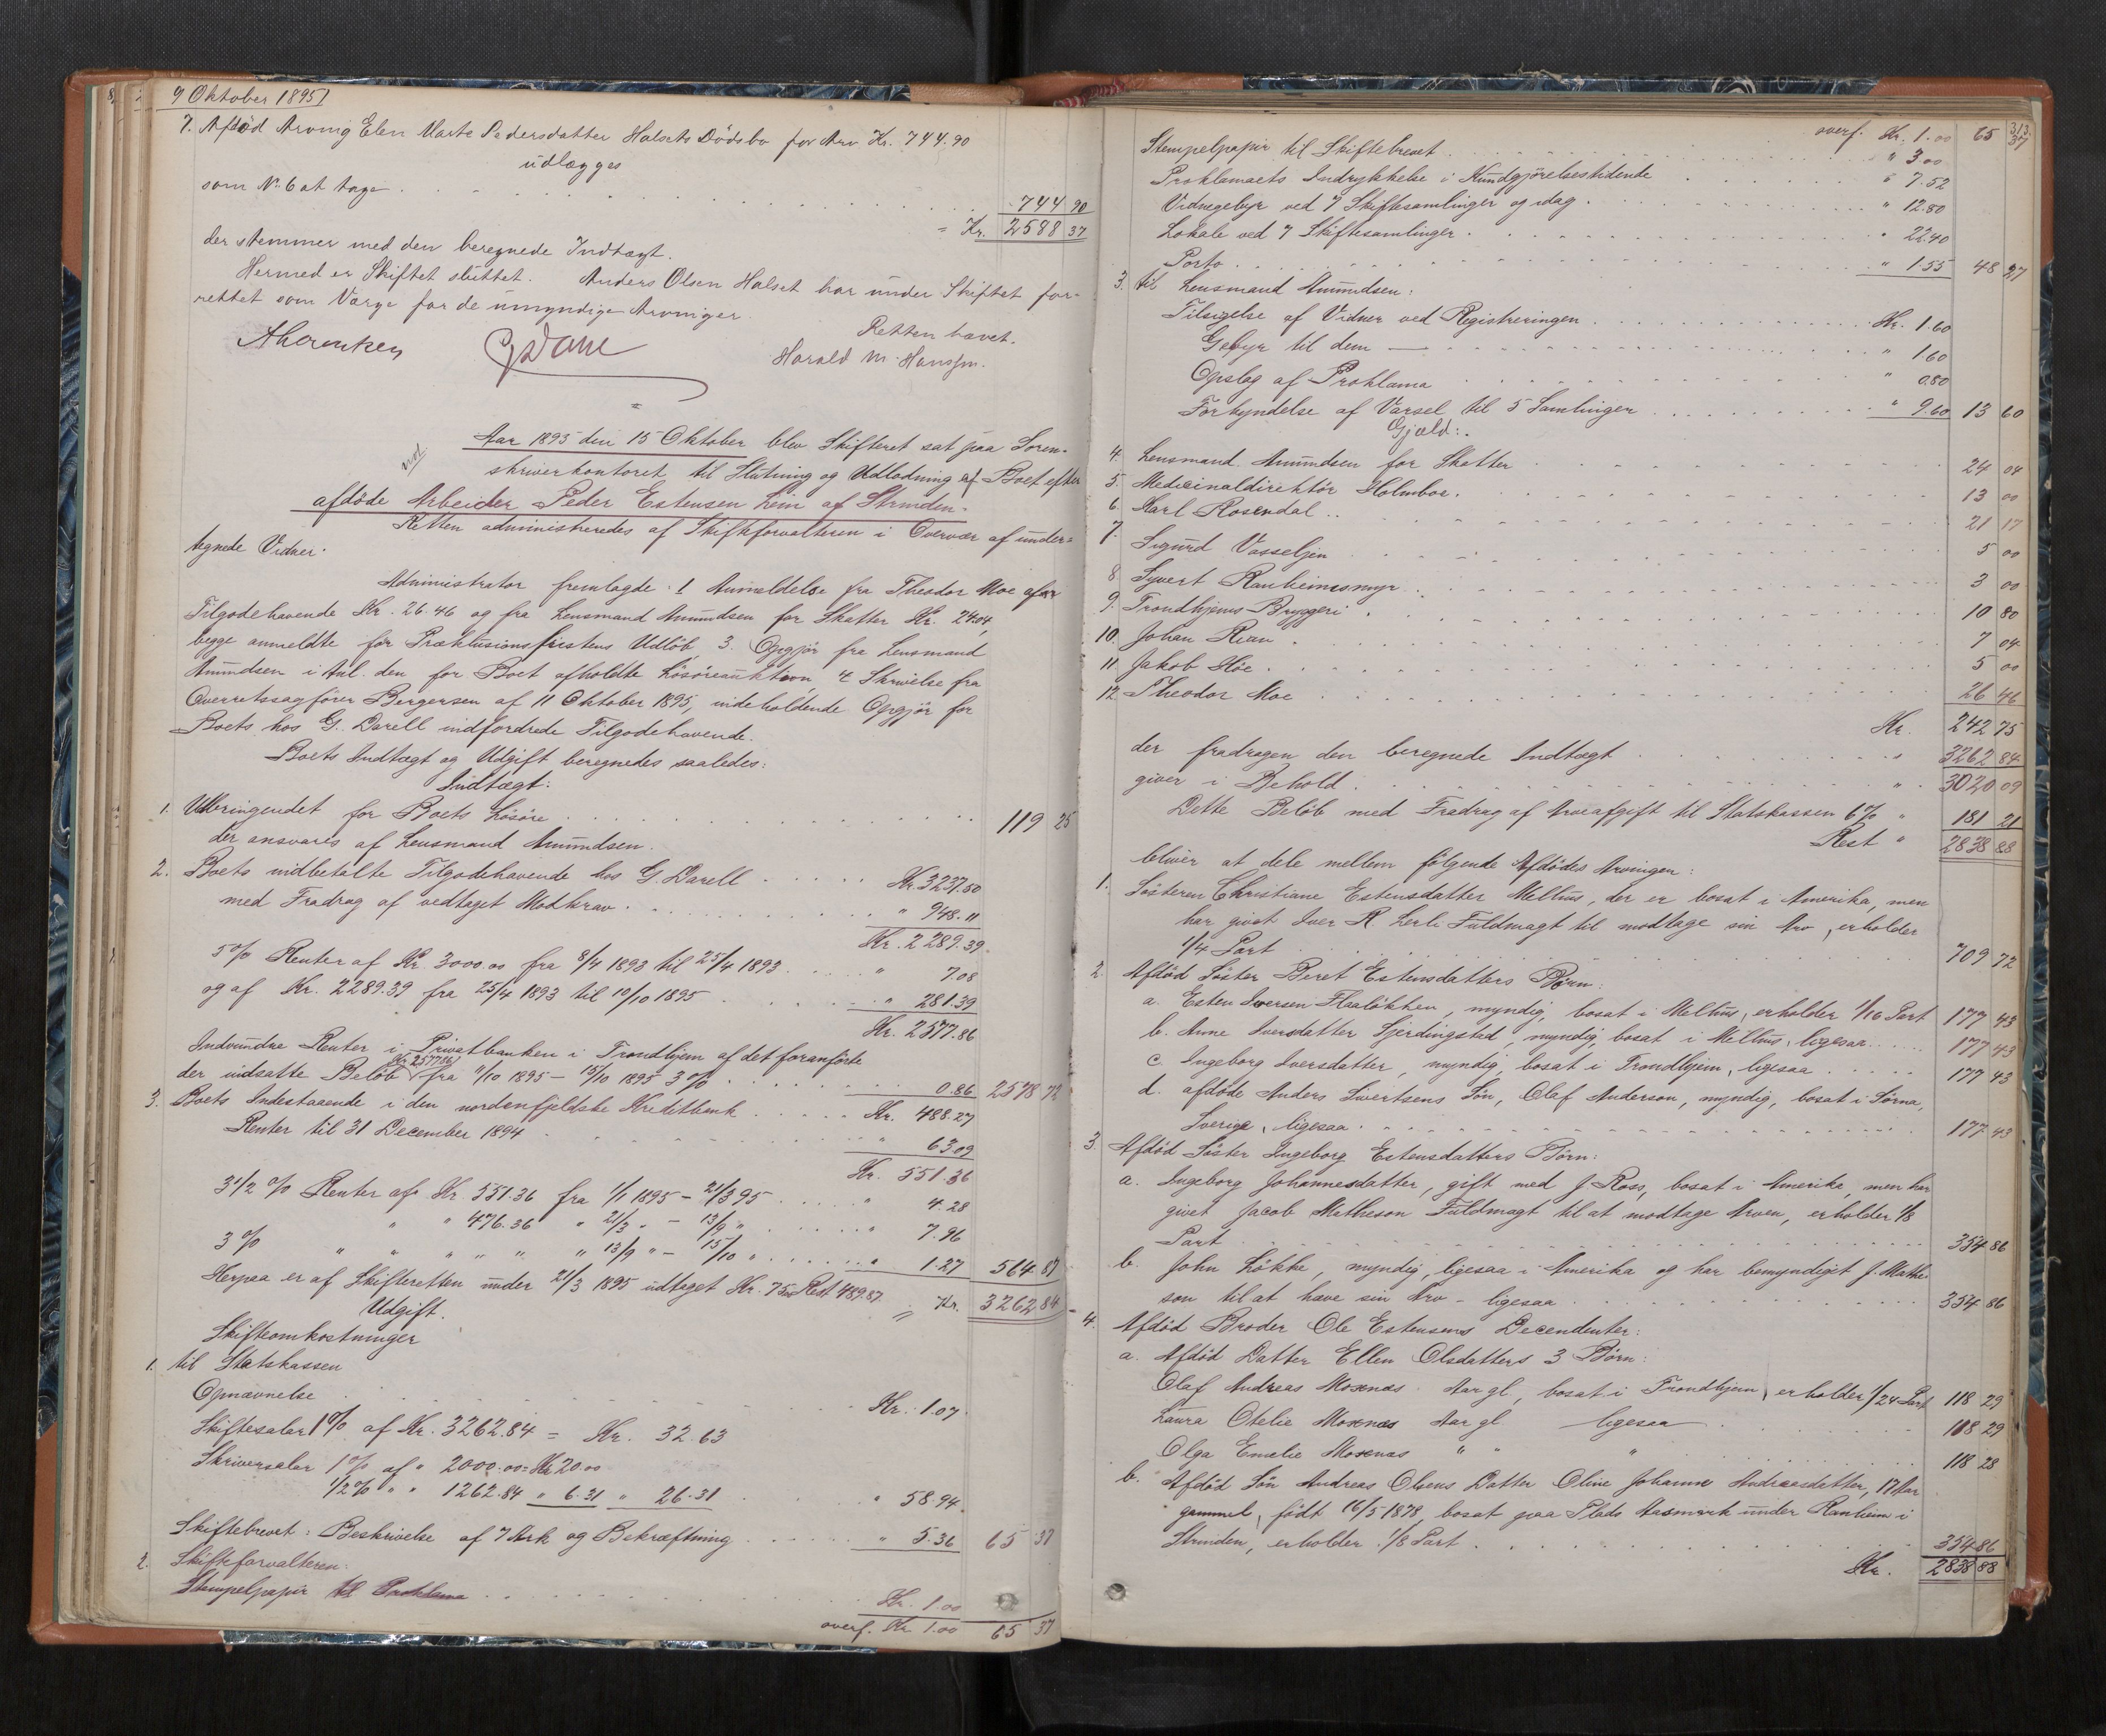 9 Oktober 1895
7. Afdöd Arving Elen Marta Pedersdatter Halsets Dödsbo for Arv Kr. 744.90
udlægges
som No 6 at tage . . . 744 90
= Kr. 2588 37
der stemmer med den beregnede Indtægt.
Hermed er Skiftet sluttet. Anders Olsen Halset har under Skiftet for-
rettet som Værge for de umyndige Arvinger.
Retten hævet.
Harald M. Hanssen.
Aar 1895 den 15 Oktober blev Skifteret sat paa Soren-
skriverkontoret til Slutning og Udlodning af Boet efter
afdöde Arbeider Peder Estensen Leim af Strinden.
Retten administreredes af Skifteforvalteren i Overvær af under-
tegnede Vidner.
Administrator fremlagde: 1 Anmeldelse fra Theodor Moe
Tilgodehavende Kr. 26.46 og fra Lensmand Amundsen for Skatter Kr. 24.04,
begge anmeldte för Præklusionsfristens Udlöb, 3. Opgjör fra Lensmand
Amundsen i Anl. den for Boet afholdte Lösöreauktion 4 Skrivelse fra
Overretssagförer Bergersen af 11 Oktober 1895, indeholdende Opgjör for
Boets hos G. Darell indfordrede Tilgodehavende.
Boets Indtægt og Udgift beregnedes saaledes:
Indtægt:
1. Udbringendet for Boets Lösöre . . . 119 25
der ansvares af Lensmand Amundsen.
2. Boets indbetalte Tilgodehavende hos G. Darell . . . Kr. 3237.50
med Fradrag af vedtaget Modkrav . . . " 948.11
Kr. 2289.39
5% Renter af Kr. 3000.00 fra 8/4 1893 til 25/4 1893 . . . " 7.08
og af Kr. 2289.39 fra 25/4 1893 til 10/10 1895 . . . " 281.39
Kr. 2577.86
Indvundne Renter i Privatbanken i Trondhjem af det foranförte
der indsatte Belöb Kr 2577.86 fra 11/10 1895 - 15/10 1895 3% . . . 0.86 2578 72
3. Boets Indestaaende i den nordenfjeldske Kreditbank . . . Kr. 488.27
Renter til 31 December 1894 . . . " 63.09
Kr. 551.36
3 1/2 % Renter af Kr 551.36 fra 1/1 1895 - 21/3 95 . . . " 4.28
" " 476.36 " 21/3 " - 13/9 " . . . " 7.96
3 % " " " " " " 13/9 " - 15/10 " . . . " 1.27 564 87
Herpaa er af Skifteretten under 21/3 1895 udtaget Kr. 75.00 Rest 489.87. = Kr. 3262 84
Udgift.
Skifteomkostninger
1. til Statskassen
Opnævnelse . . . Kr. 1.07
Skiftesalar 1% af Kr. 3262.84 = Kr. 32.63
Skriversalar 1% af " 2000.00 = Kr 20.00
1/2% " " 1262.84 " 6.31 " 26.31 . . . " 58.94
Skiftebrevet: Beskrivelse af 7 Ark og Bekræftning . . . " 5.36 65 37
2. Skifteforvalteren:
Stempelpapir til Proklama . . . Kr. 1.00
overf. Kr 1.00 65 37
313.
overf. Kr. 1.00 65 37
Stempelpapir til Skiftebrevet . . . " 3.00
Proklamaets Indrykkelse i Kundgjörelsestidende . . . " 7.52
Vidnegebyr ved 7 Skiftesamlinger og idag . . . " 12.80
Lokale ved 7 Skiftesamlinger . . . " 22.40
Porto . . . " 1.55 48 27
3. til Lensmand Amundsen:
Tilsigelse af Vidner ved Registreringen . . . Kr. 1.60
Gebyr til dem — . . . " 1.60
Opslag af Proklama . . . " 0.80
Forkyndelse af Varsel til 5 Samlinger . . . " 9.60 13 60
Gjæld:
4. Lensmand Amundsen for Skatter . . . 24 04
5. Medicinaldirektör Holmboe . . . 13 00
6. Karl Rosendal . . . 21 17
7. Sigurd Vasseljen . . . 5 00
8 Syvert Ranheimsmyr . . . 3 00
9. Trondhjems Bryggeri . . . 10 80
10. Johan Rian . . . 7 04
11. Jakob Höe . . . 5 00
12 Theodor Moe . . . 26 46
Kr. 242 75
der fradragen den beregnede Indtægt . . . " 3262 84
giver i Behold . . . " 3020 09
Dette Belöb med Fradrag af Arveafgift til Statskassen 6% " 181 21
Rest " 2838 88
bliver at dele mellem fölgende Afdödes Arvinger:
1. Sösteren Christiane Estensdatter Melhus, der er bosat i Amerika, men
har givet Iver R. Lerli Fuldmagt til modtage sin Arv, erholder
1/4 Part . . . 709 72
2. Afdöd Söster Beret Estensdatters Börn:
a. Esten Iversen Flaalökken, myndig, bosat i Melhus, erholder 1/16 Part 177 43
b. Anne Iversdatter Gjerdingstad, myndig bosat i Melhus, ligesaa . . . 177 43
c. Ingeborg Iversdatter, myndig, bosat i Trondhjem, ligesaa . . . 177 43
d. afdöde Anders Sivertsens Sön, Olaf Anderson, myndig, bosat i Sörna,
Sverige, ligesaa . . . 177 43
3. Afdöd Söster Ingeborg Estensdatters Börn:
a. Ingeborg Johannesdatter, gift med J. Ross, bosat i Amerika, men har
givet Jacob Matheson Fuldmagt til at modtage Arven, erholder 1/8
Part . . . 354 86
b. John Lökke, myndig, ligesaa i Amerika og har bemyndiget J. Mathe-
son til at hæve sin Arv - ligesaa . . . 354 86
4. Afdöd Broder Ole Estensens Decendenter:
a. Afdöd Datter Ellen Olsdatters 3 Börn:
Olaf Andreas Moxnæs Aar gl, bosat i Trondhjem, erholder 1/24 Part 118 29
Laura Otelie Moxnæs Aar gl ligesaa . . . 118 29
Olga Emelie Moxnæs " " " . . . 118 28
b. Afdöd Sön Andreas Olsens Datter Oline Johanna Andreasdatter, 17 Aar
gammel, födt 16/5 1878, bosat paa Plads Aasmark under Ranheim i
Strinden, erholder 1/8 Part . . . 354 86
Kr. 2838 88